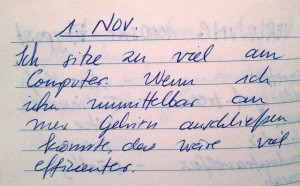 1. Nov.
Ich sitze zu viel am
Computer. Wenn ich
ihn unmittelbar an
mein Gehirn anschließen
könnte, das wäre viel
effizienter.